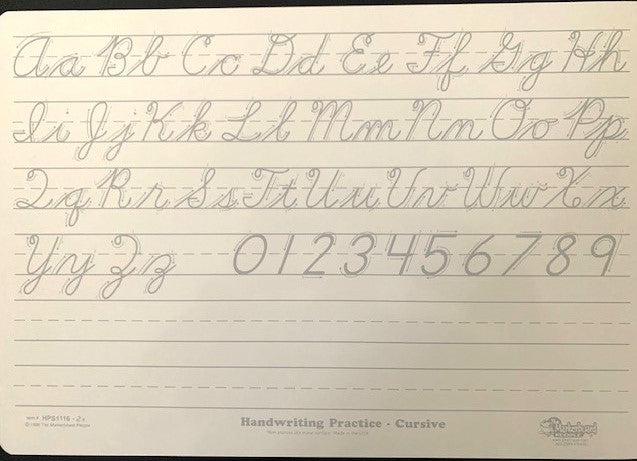 Aa Bb Cc Dd Ee Ff Gg Hh
Ii Jj Kk Ll Mm Nn Oo Pp
Qq Rr Ss Tt Uu Vv Ww Xx
Yy Zz 0 1 2 3 4 5 6 7 8 9
Item # HPS1116 -
©1986 The Markerboard People
Handwriting Practice - Cursive
Made in the USA
Markerboard
PEOPLE